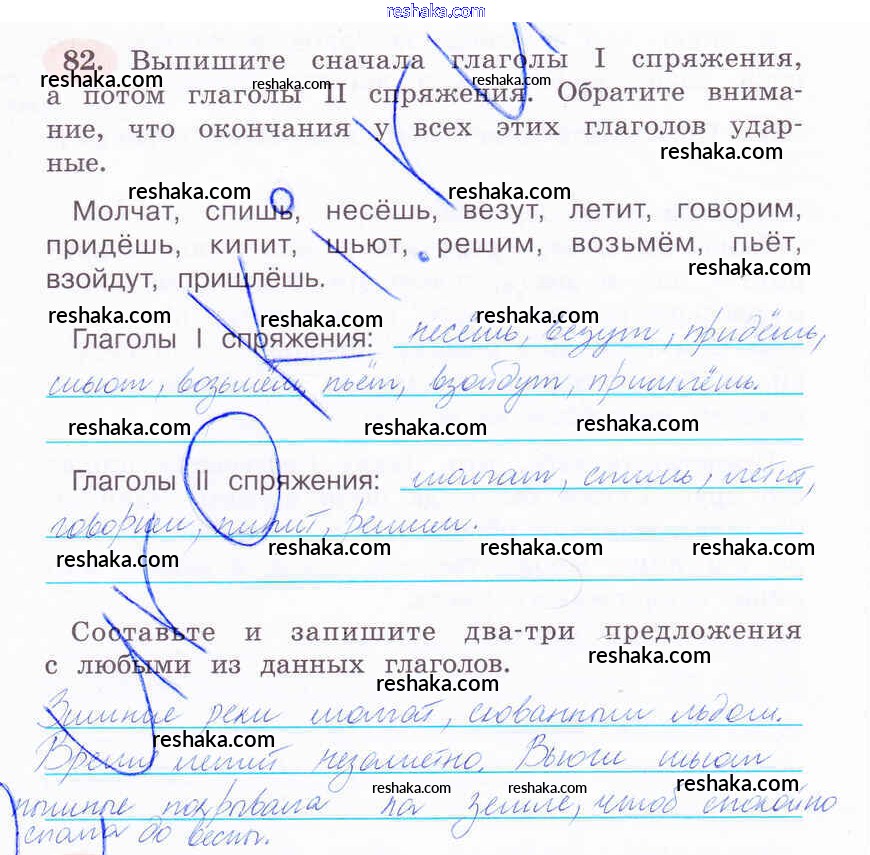 reshaka.com
82. Выпишите сначала глаголы I спряжения,
reshaka.com reshaka.com reshaka.com
а потом глаголы II спряжения. Обратите внима-
ние, что окончания у всех этих глаголов удар-
reshaka.com
ные.
reshaka.com reshaka.com
Молчат, спишь, несёшь, везут, летит, говорим,
придёшь, кипит, шьют, решим, возьмём, пьёт,
reshaka.com
взойдут, пришлёшь.
reshaka.com reshaka.com reshaka.com
Глаголы I спряжения: несёшь, везут, придёшь,
шьют, возьмём, пьёт, взойдут, пришлёшь.
reshaka.com reshaka.com reshaka.com
Глаголы II спряжения: молчат, спишь, летит,
говорим, кипит, решим.
reshaka.com reshaka.com reshaka.com reshaka.com
Составьте и запишите два-три предложения
reshaka.com
с любыми из данных глаголов.
reshaka.com
Зимние реки молчат, скованные льдом.
reshaka.com
Время летит незаметно. Вьюги шьют
reshaka.com reshaka.com reshaka.com
пышные покрывала на земле, чтоб спокойно
спала до весны.
urOKi.RU